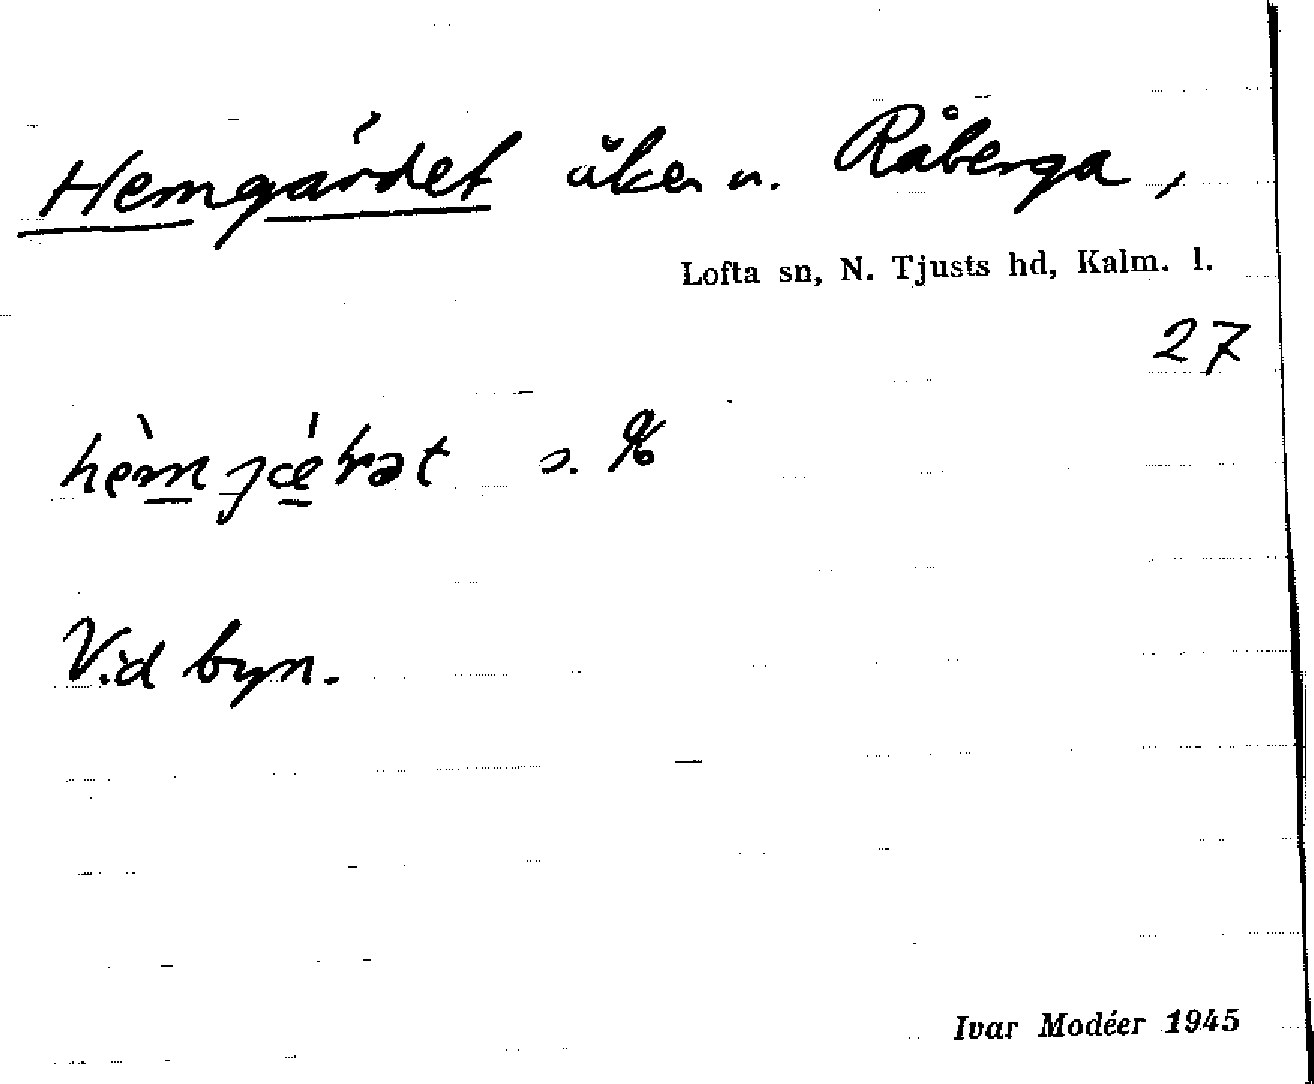 Hemgärdet åker u. Råberga,
Lofta sn, N. Tjusts hd, Kalm. l.
27
s. %
Vid byn.
Ivar Modéer 1945